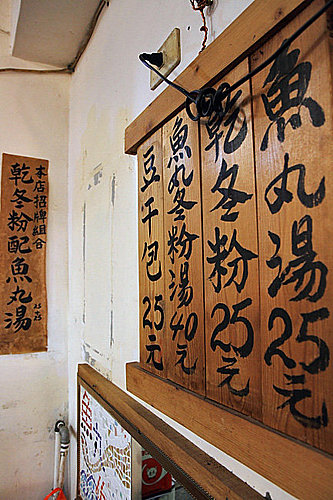 魚丸湯25元
乾冬粉25元
魚丸冬粉湯40元
豆干包25元
本店招牌組合
乾冬粉配魚丸湯